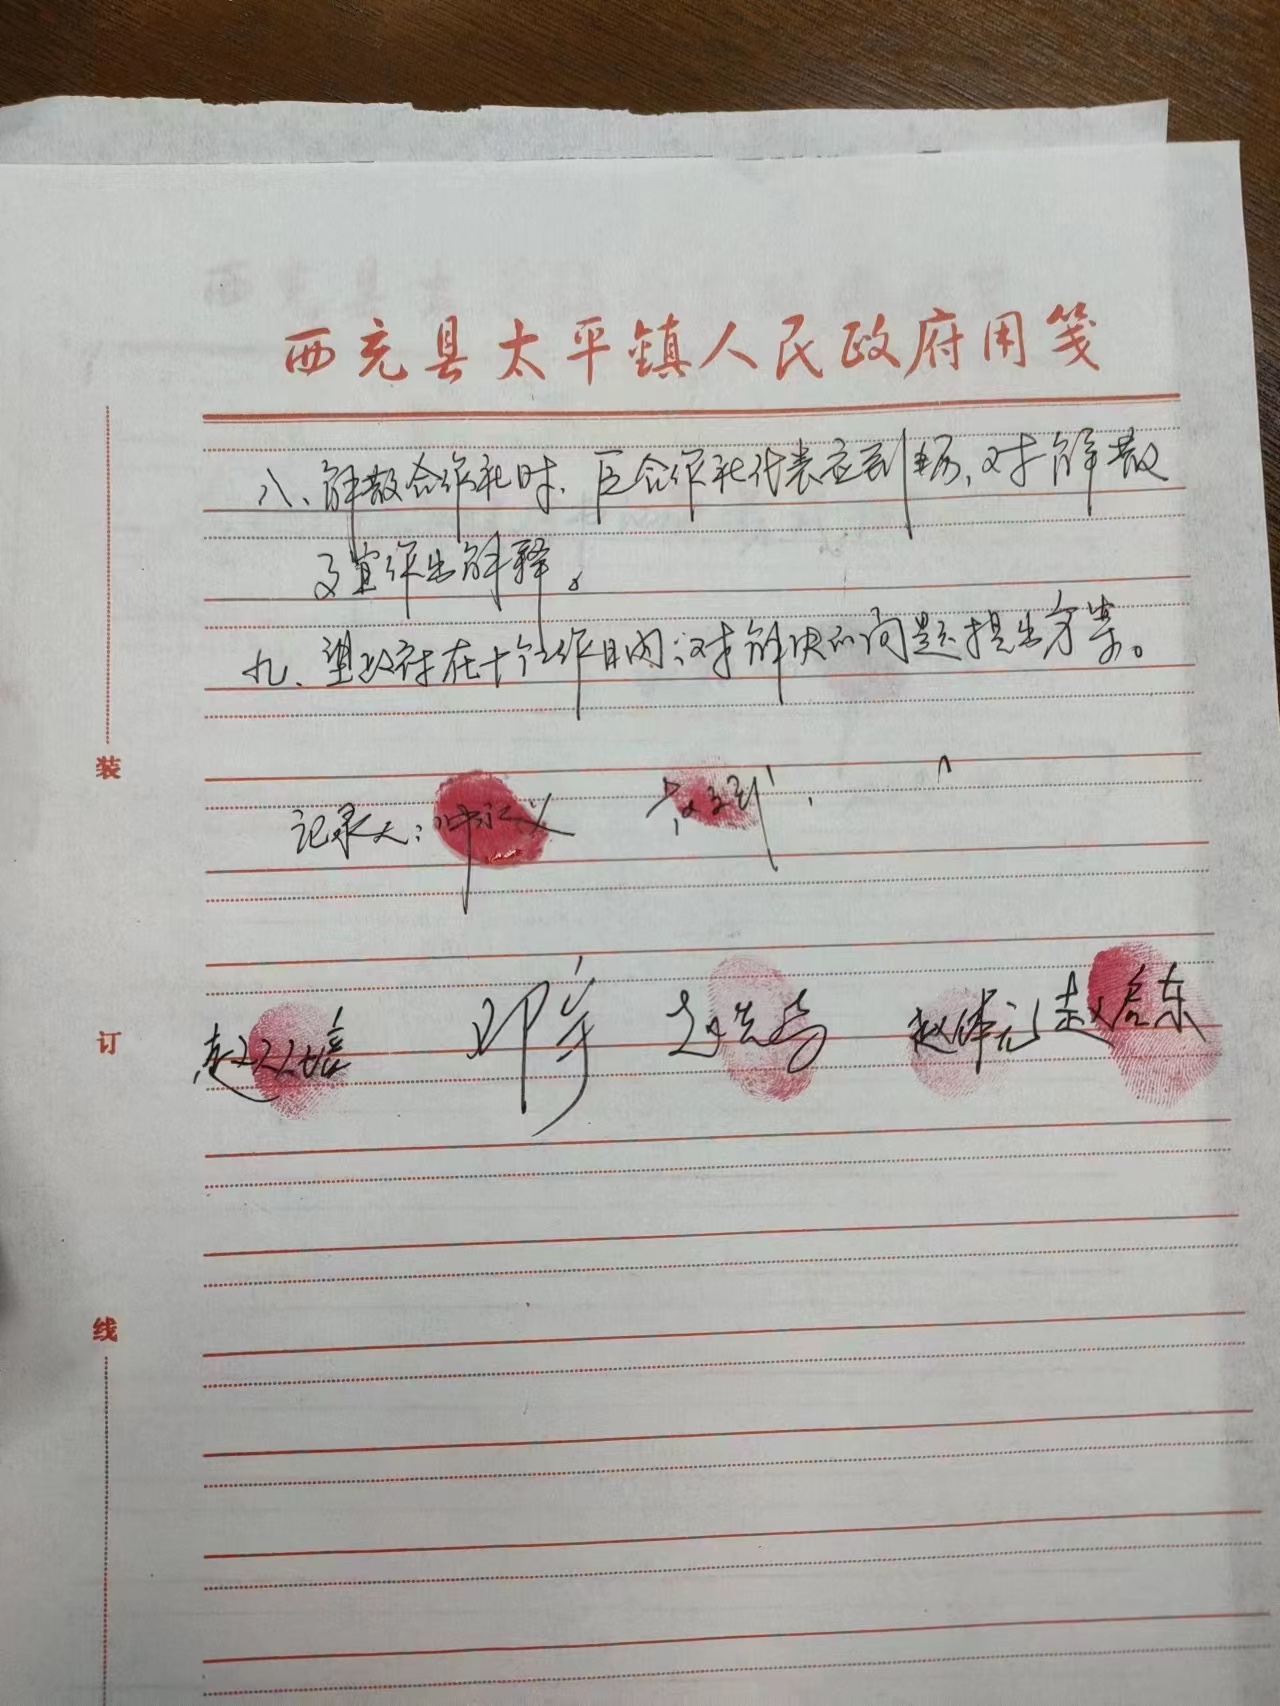 西充县太平镇人民政府用笺
八、解散合作社时、巨合作社代表应到场,对解散
事宜作出解释。
九、望政府在十个工作日内,对解决的问题提出方案。
记录人:
邓宇 赵体元 赵启东
装
订
线